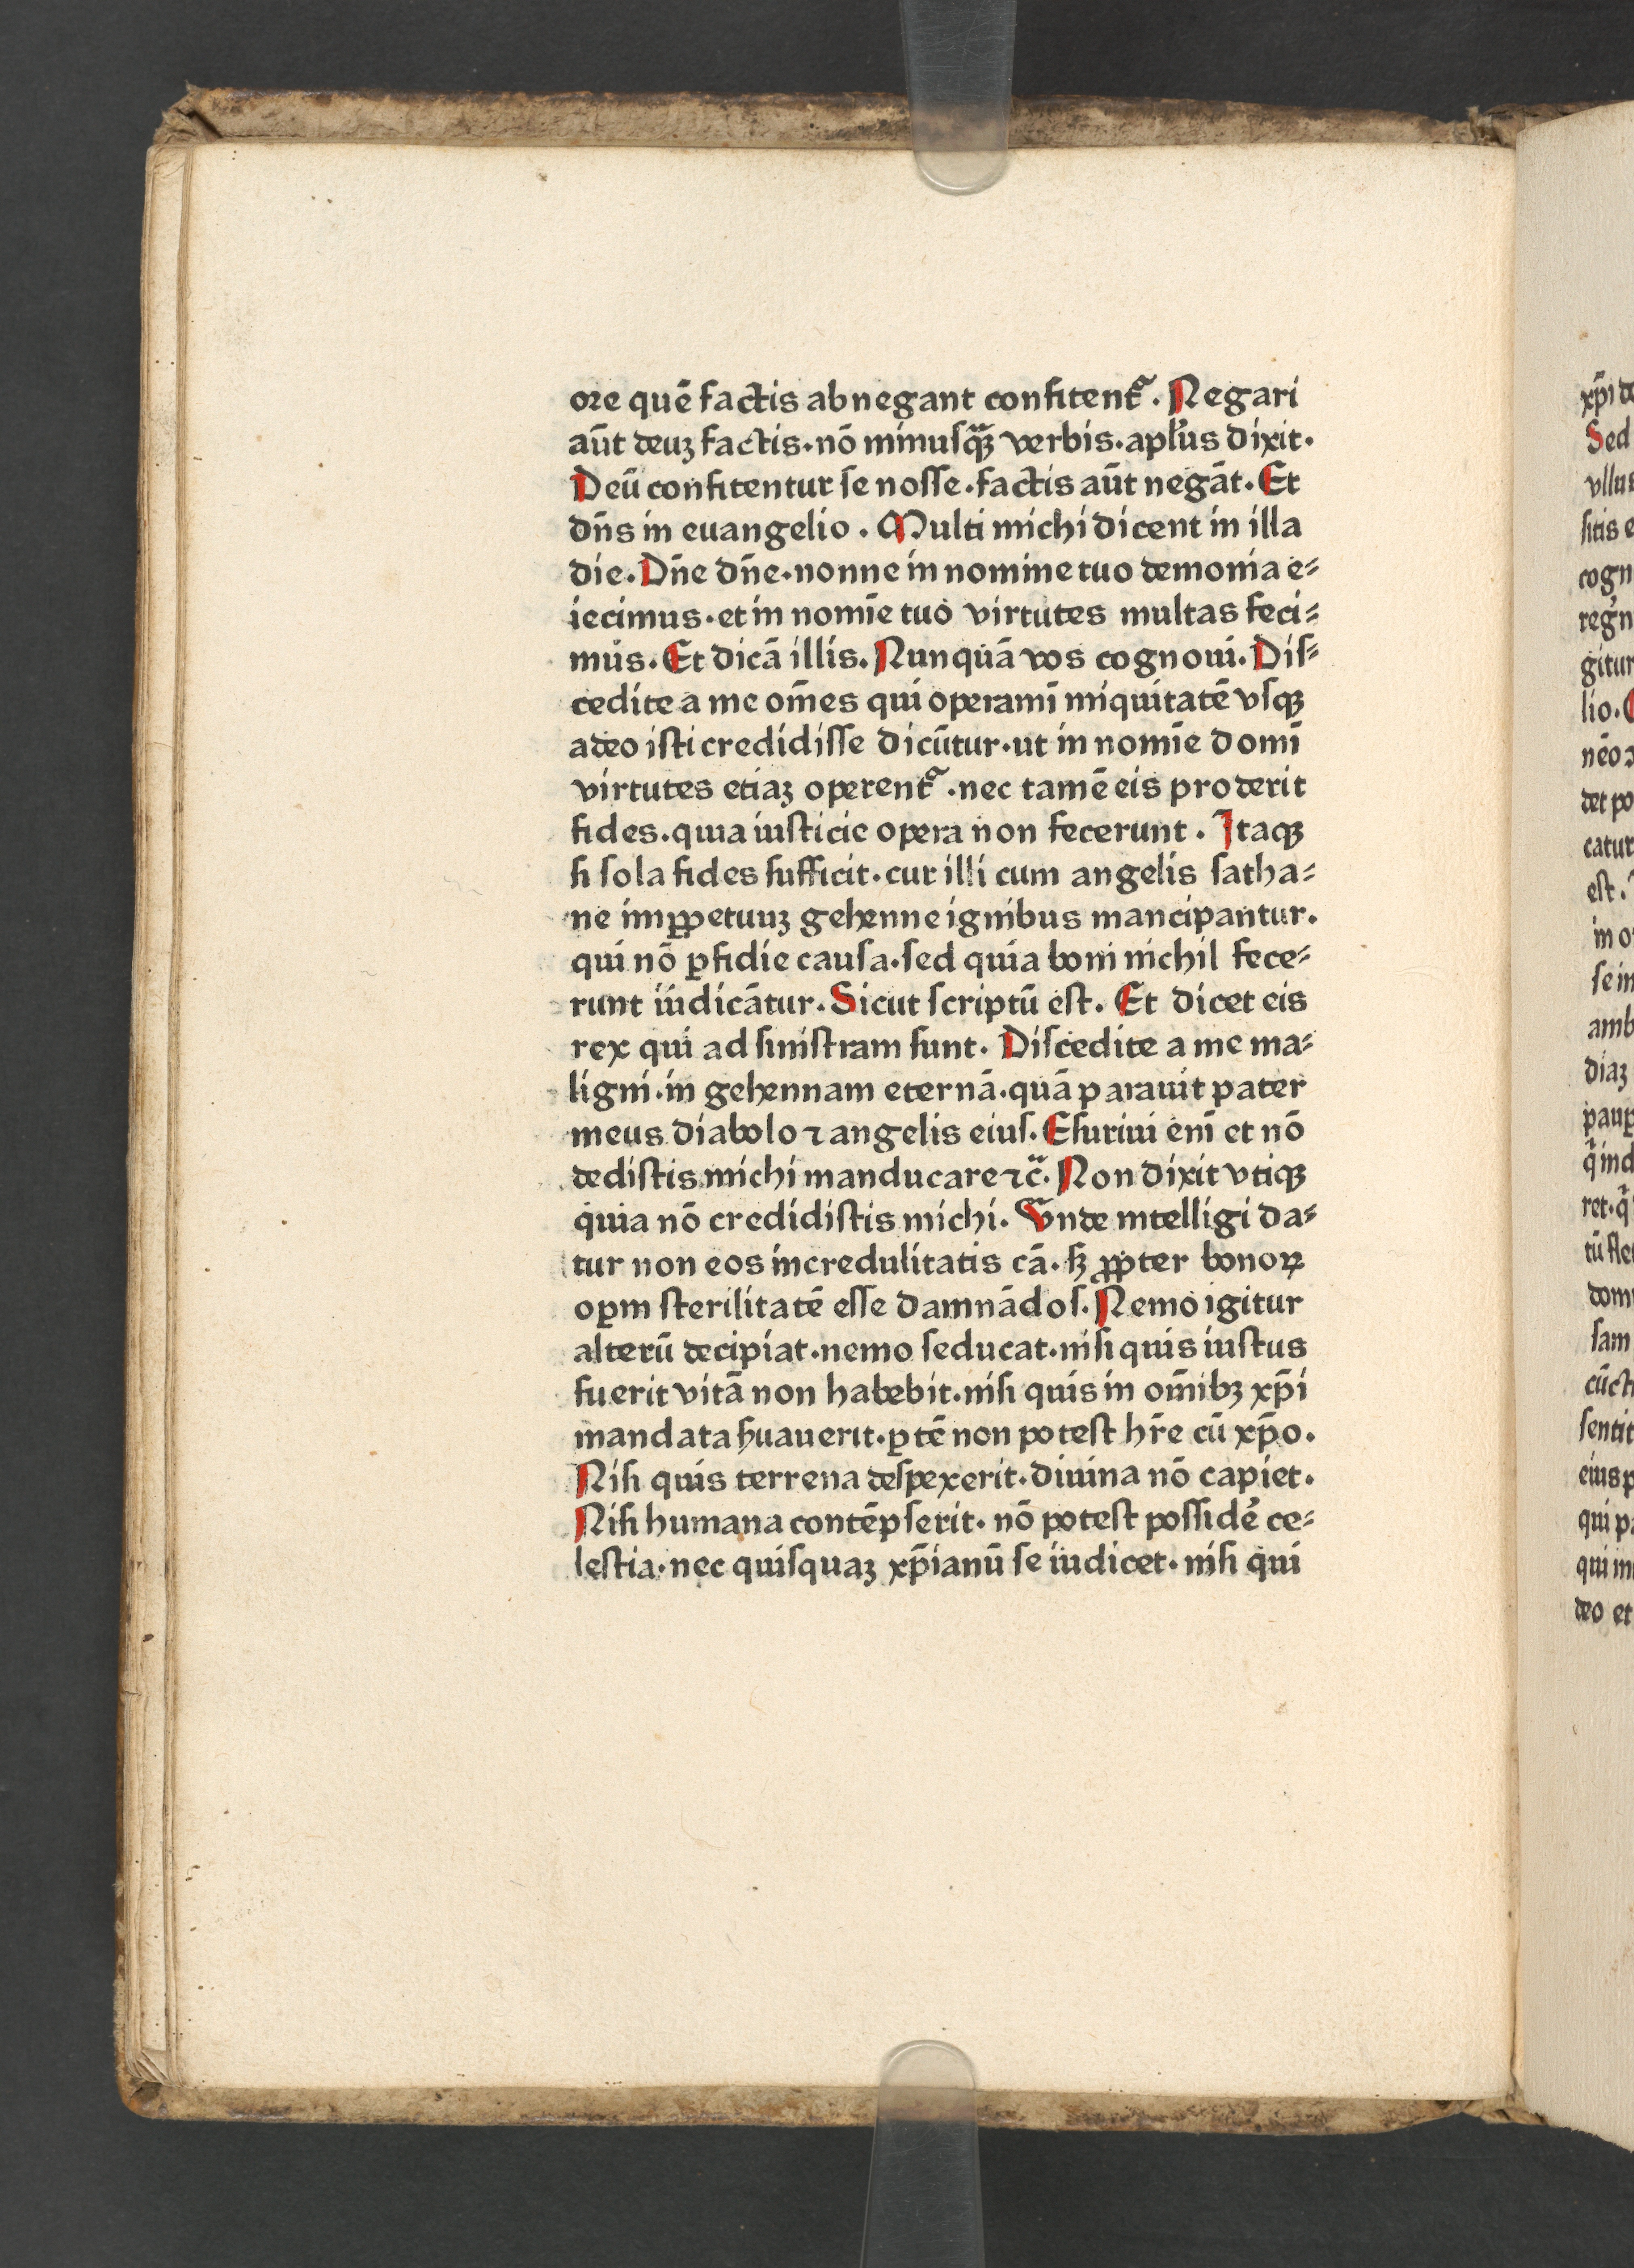 oꝛe quē factis abnegant confitentᷓ. Negari
aūt deuꝫ factis·nō minusqᷓꝫ verbis·apl'us dixit·
Deū confitentur se nosse·factis aūt negāt·Et
dn̄s in euangelio. Multi michi dicent in illa
die. Dn̄e dn̄e·nonne in nomine tuo demonia e⸗
iecimus·et in nomīe tuo virtutes multas feci⸗
mus. Et dicā illis. Nunquā vos cognoui. Dis⸗
cedite a me om̄es qui operamī iniquitatē vsqꝫ
adeo isti credidisse dicūtur·ut in nomīe domī
virtutes etiaꝫ operentᷓ·nec tamē eis proderit
fides·quia iusticie opera non fecerunt. Itaqꝫ
si sola fides sufficit·cur illi cum angelis satha⸗
ne imꝑpetuuꝫ gehenne ignibus mancipantur·
qui nō ꝑfidie causa·sed quia boni nichil fece⸗
runt iudicātur. Sicut scriptū est. Et dicet eis
rex qui ad sinistram sunt. Discedite a me ma⸗
ligni·in gehennam eternā·quā parauit pater
meus diabolo ⁊ angelis eius. Esuriui enī et nō
dedistis michi manducare ⁊c̄. Non dixit vtiqꝫ
quia nō credidistis michi. Vnde intelligi da⸗
tur non eos incredulitatis cā·sꝫ ꝓpter bonoꝝ
oꝑm sterilitatē esse damnādos. Nemo igitur
alterū decipiat·nemo seducat·nisi quis iustus
fuerit vitā non habebit·nisi quis in om̄ibꝫ xp̄i
mandata ẜuauerit·ꝑtē non potest hr̄e cū xp̄o.
Nisi quis terrena despexerit·diuina nō capiet.
Nisi humana contēpserit·nō potest possidē ce⸗
lestia·nec quisquaꝫ xp̄ianū se iudicet·nisi qui
xp̄i de
Sed
vllus
sitis e
cogn
regn
gitur
lio.
det po
catur
est.
in o
se in
amb
diaꝫ
ꝑauꝑ
q̄ ind
ret·q̄
tū fle
dom
sam
cūct
sentit
eius p
qui p
qui in
deo et